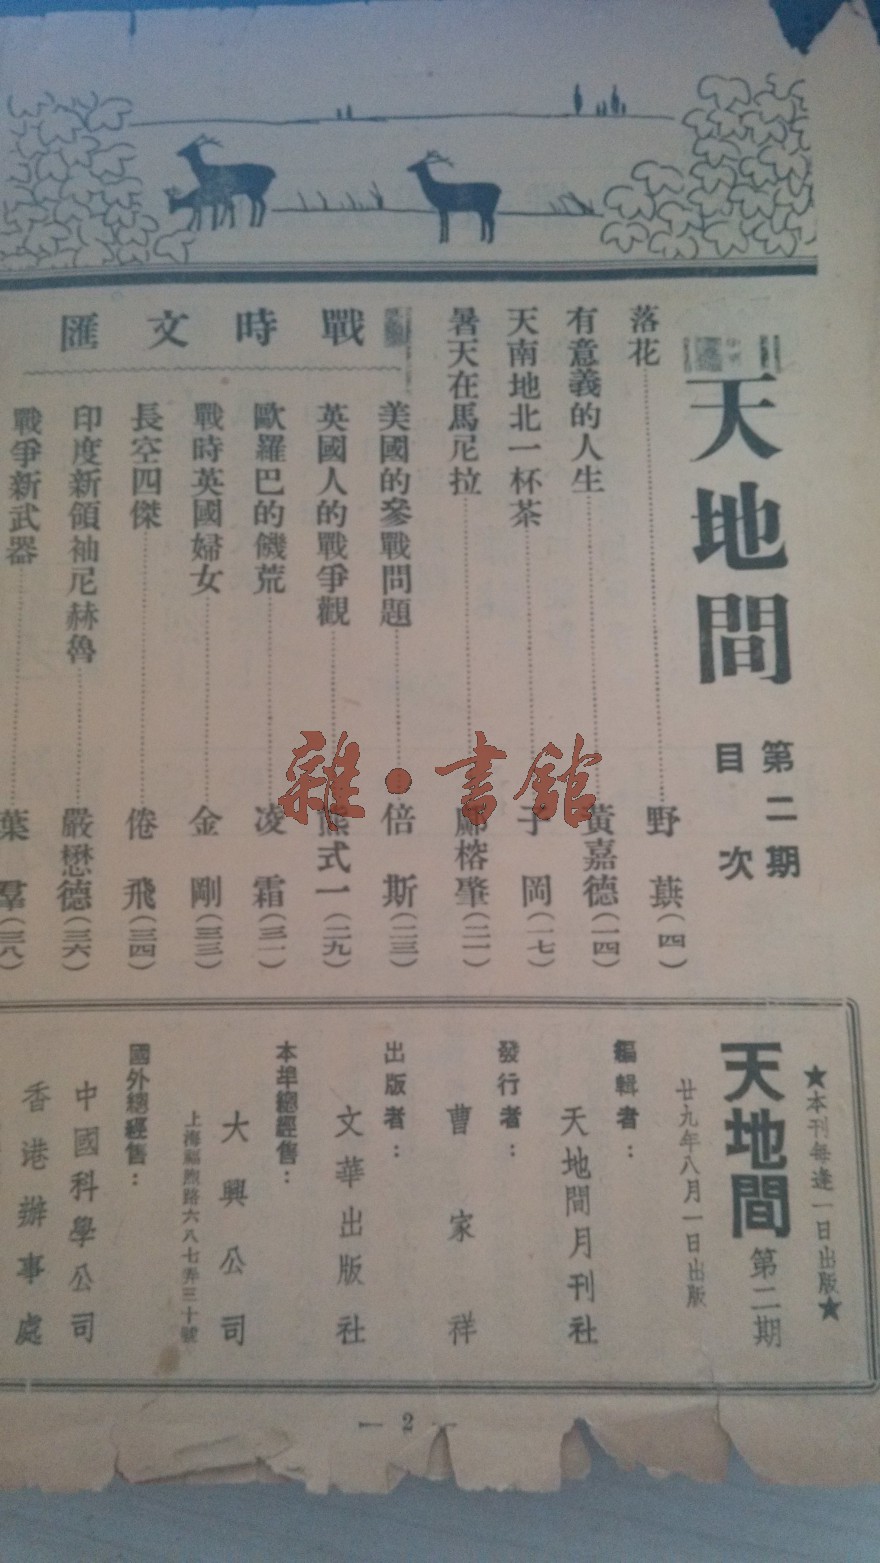 天地間
第二期
目次
落花……野蕻(四)
有意義的人生……黃嘉德(一四)
天南地北一杯茶……子岡(一七)
暑天在馬尼拉……鄺榕肇(二一)
戰時文匯
美國的參戰問題……倍斯(二三)
英國人的戰爭觀……熊式一(二九)
歐羅巴的饑荒……凌霜(三一)
戰時英國婦女……金剛(三三)
長空四傑……倦飛(三四)
印度新領袖尼赫魯……嚴懋德(三六)
戰爭新武器……葉羣(三八)
雜·書館
★本刊每逢一日出版★
天地間第二期
廿九年八月一日出版
編輯者：
天地間月刊社
發行者：
曹家祥
出版者：
文華出版社
本埠總經售：
大興公司
上海福煦路六八七弄三十號
國外總經售：
中國科學公司
香港辦事處
— 2 —